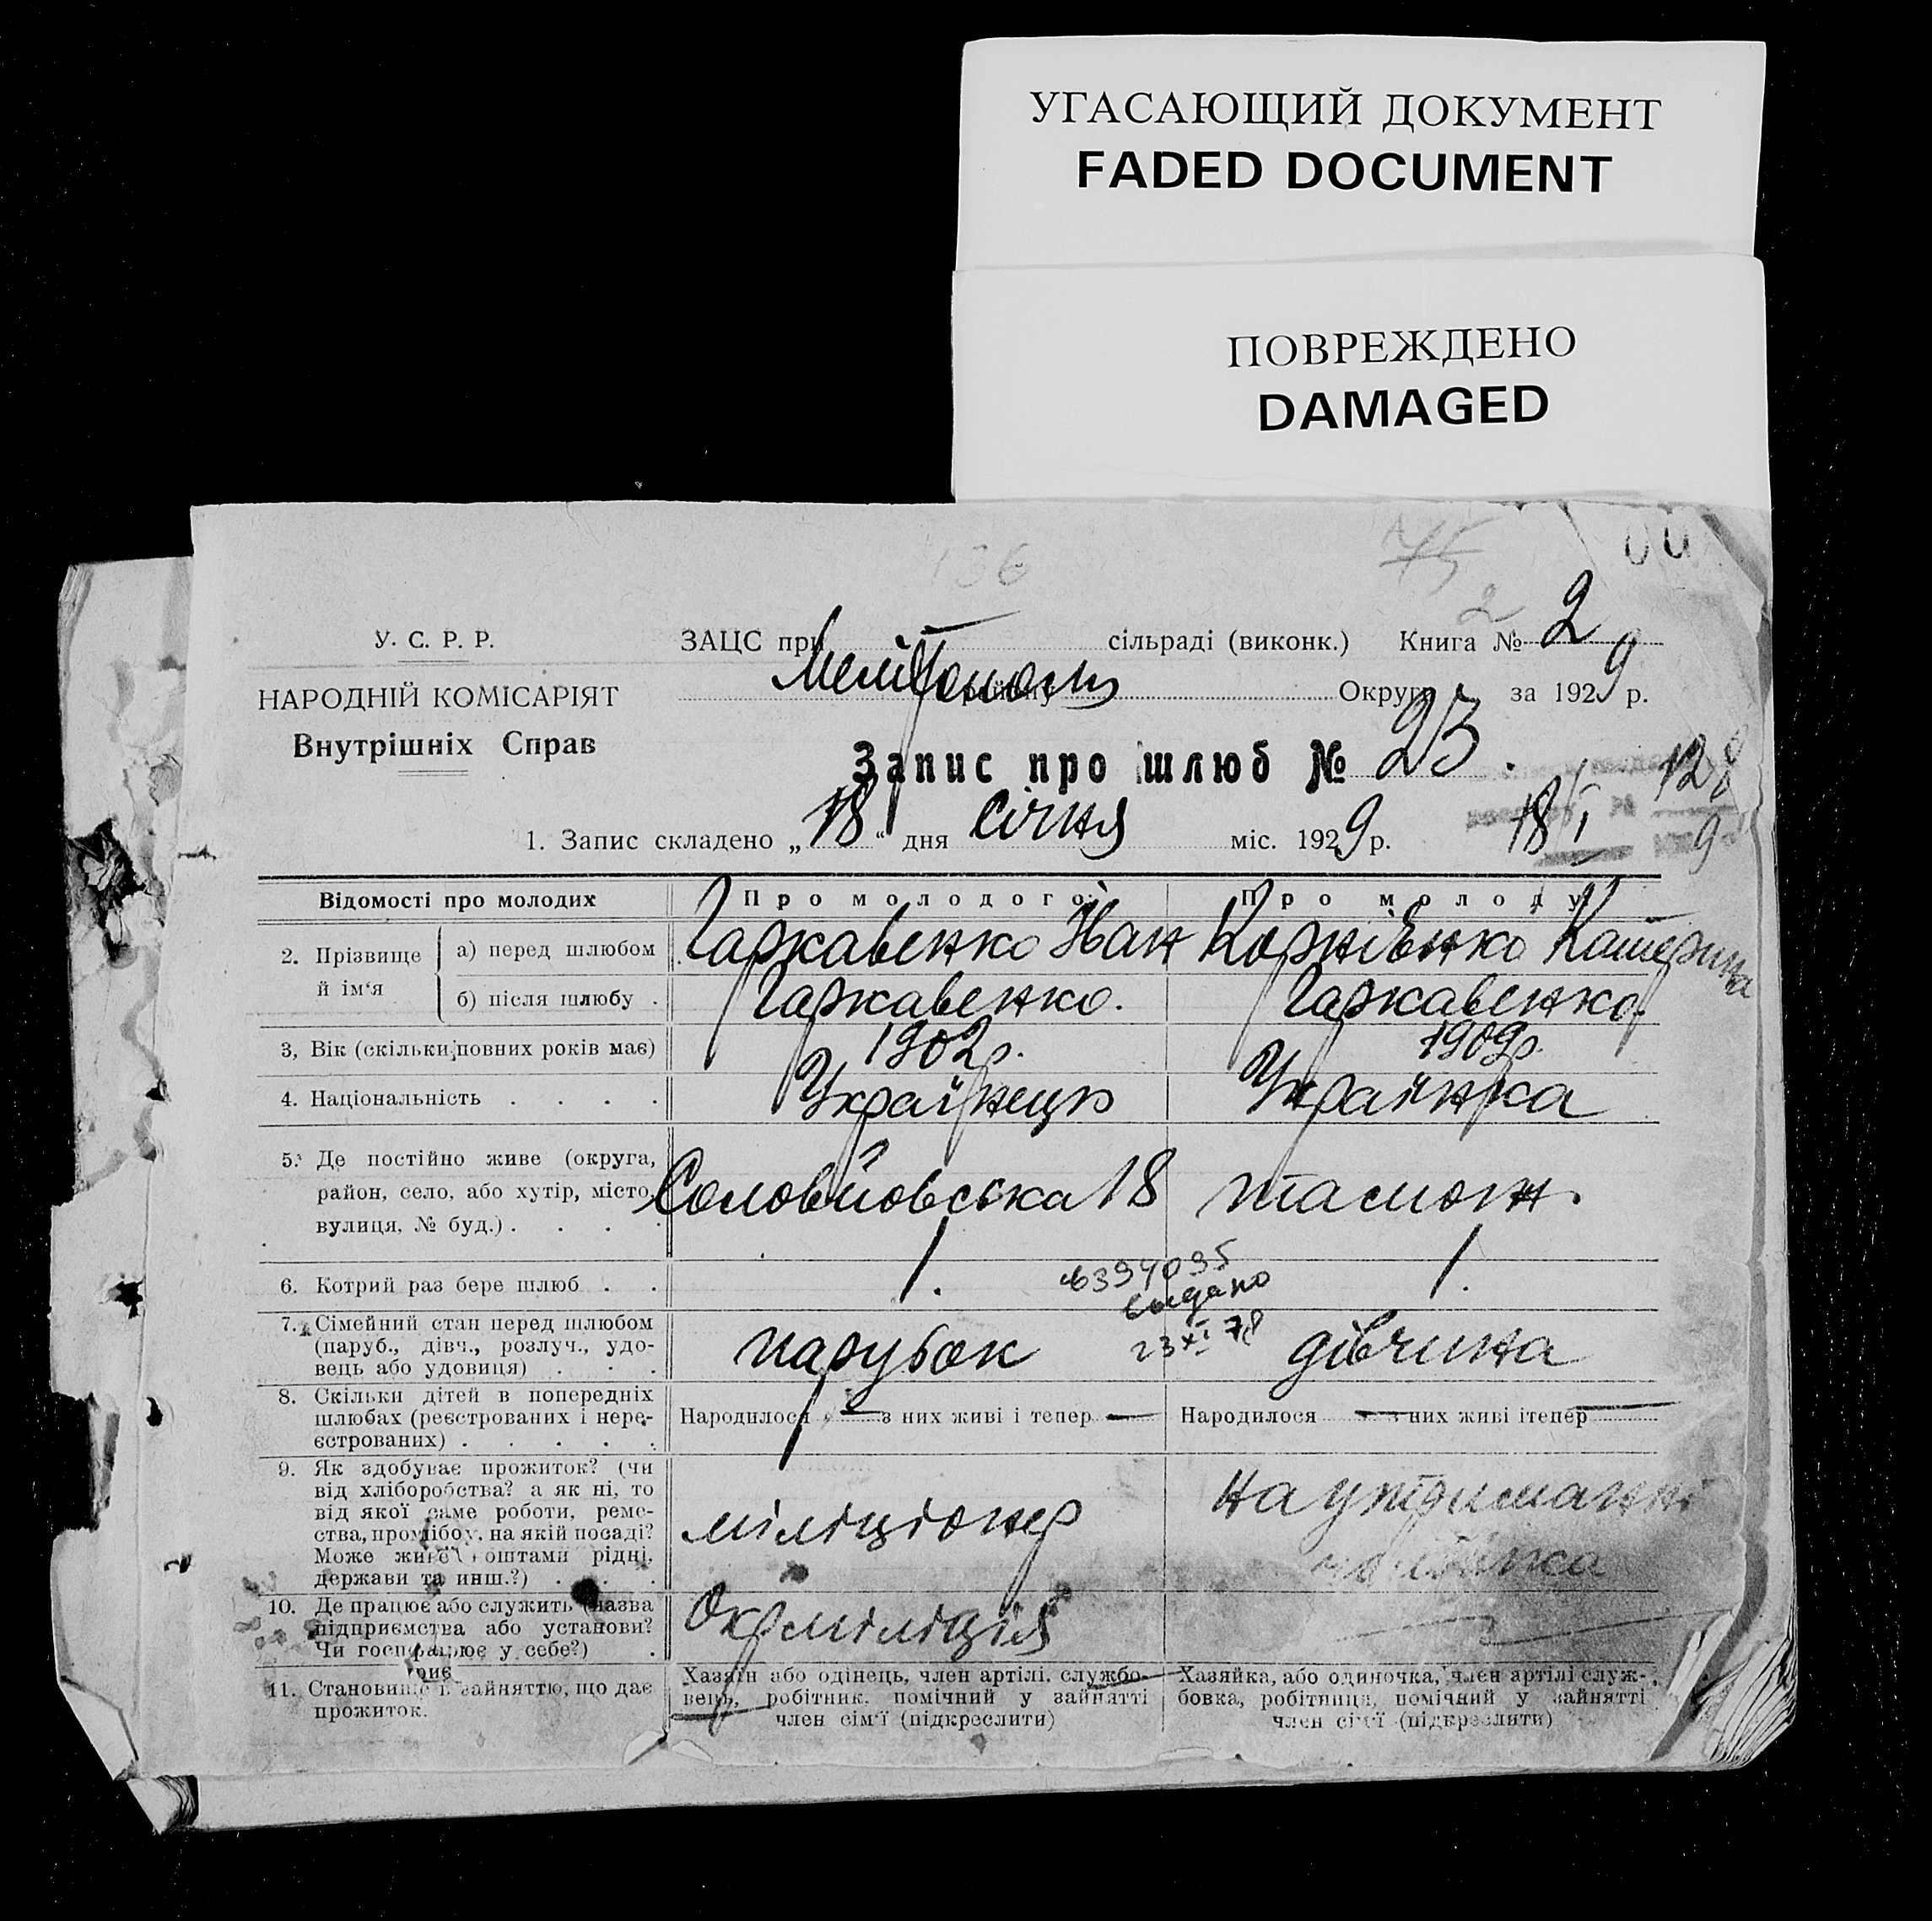 УГАСАЮЩИЙ ДОКУМЕНТ
FADED DOCUMENT
ПОВРЕЖДЕНО
DAMAGED
136
75
2
У. С. Р. Р.
ЗАЦС при сільраді (виконк.) Книга № 2
Мелітополь
НАРОДНІЙ КОМІСАРІЯТ
району Округи за 1929 р.
Внутрішніх Справ
Запис про шлюб № 23.
128
9
1. Запис складено „18“ дня січня міс. 1929 р. 18/I
Відомості про молодих Про молодого Про молоду
2. Прізвище й ім‘я а) перед шлюбом Гаркавенко Іван Корнієнко Катерина
б) після шлюбу . Гаркавенко. Гаркавенко.
3, Вік (скільки повних років має) 1902 р. 1909 р.
4. Національність . . . . Українець Українка
5. Де постійно живе (округа,
район, село, або хутір, місто,
вулиця, № буд.) . . . . Соловйовська 18 тамож.
6. Котрий раз бере шлюб . . 1. 1.
6394095
выдано
23 XI 78
7. Сімейний стан перед шлюбом
(паруб., дівч., розлуч., удо-
вець або удовиця) . . . парубок дівчина
8. Скільки дітей в попередніх
шлюбах (реєстрованих і нере-
єстрованих) . . . . . Народилося — з них живі і тепер — Народилося — з них живі і тепер —
9. Як здобуває прожиток? (чи
від хліборобства? а як ні, то
від якої саме роботи, реме-
ства, промібоу, на якій посаді?
Може живе коштами рідні,
держави та инш.?) . . . міліціонер на утриманні
10. Де працює або служить (назва
підприємства або установи?
Чи господарює у себе?) . Окрміліція
11. Становище в зайняттю, що дає
прожиток.
Хазяїн або одінець, член артілі, службо-
вець, робітник, помічний у зайнятті
член сім‘ї (підкреслити)
Хазяйка, або одиночка, член артілі служ-
бовка, робітниця, помічний у зайнятті
член сім‘ї (підкреслити)